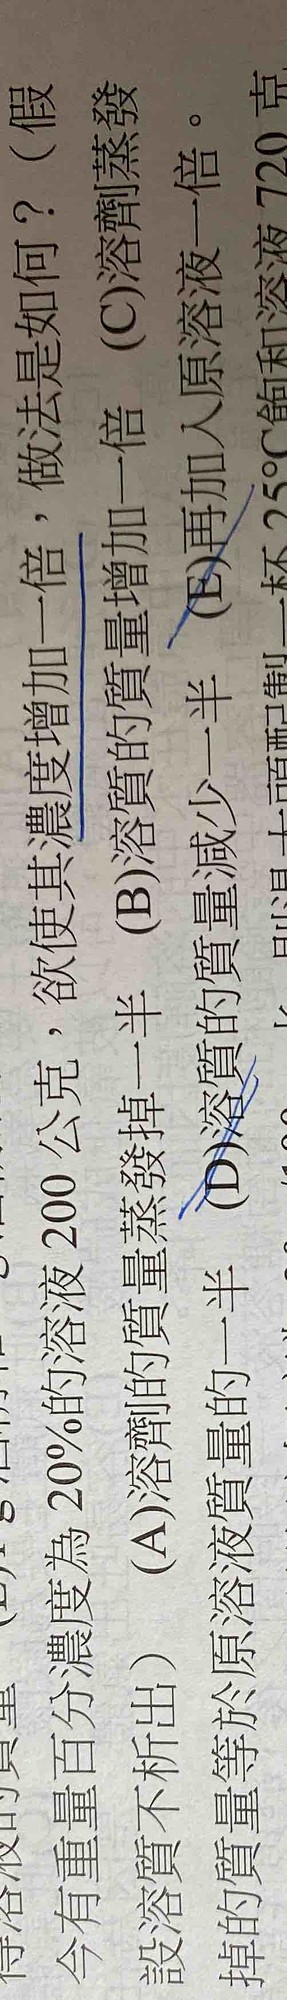 今有重量百分濃度為 20%的溶液 200 公克，欲使其濃度增加一倍，做法是如何？（假
設溶質不析出） (A)溶劑的質量蒸發掉一半 (B)溶質的質量增加一倍 (C)溶劑蒸發
掉的質量等於原溶液質量的一半 (D)溶質的質量減少一半 (E)再加入原溶液一倍。
杯 25°C飽和溶液 720 克